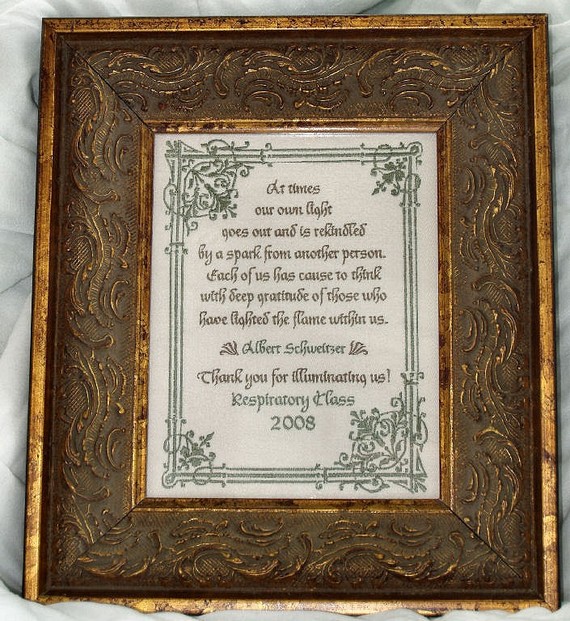 At times
our own light
goes out and is rekindled
by a spark from another person.
Each of us has cause to think
with deep gratitude of those who
have lighted the flame within us.
Albert Schweitzer
Thank you for illuminating us!
Respiratory Class
2008